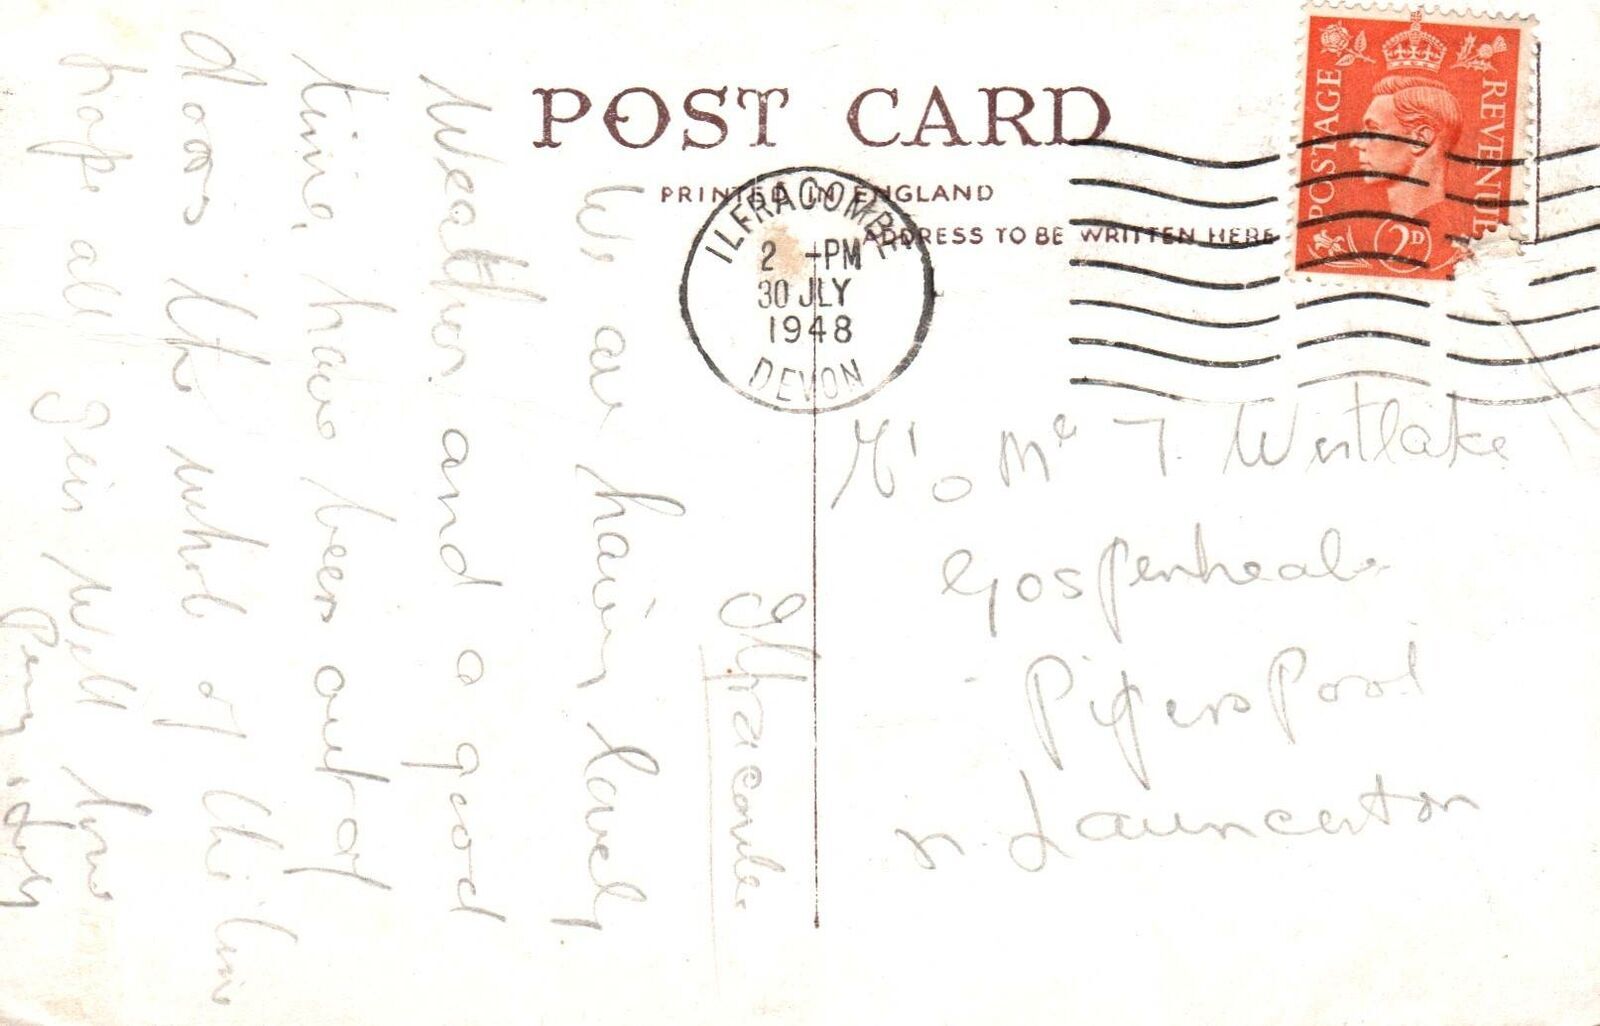 POST CARD
PRINTED IN ENGLAND
ADDRESS TO BE WRITTEN HERE
POSTAGE
REVENUE
2D
ILFRACOMBE
2 -PM
30 JLY
1948
DEVON
Ilfracombe
We are having lovely
Weather and a good
time, have been out of
doors the whole of the time
hope all is well
Westlake
Gospenheale
Pipers Pool
Launceston